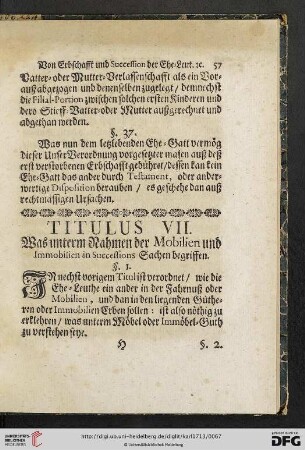 Von Erbschafft und Succession der Ehe-Leut. ꝛc. 57
Vatter- oder Mutter-Verlassenschafft als ein Vor-
auß abgezogen und denenselben zugelegt / demnechst
die Filial-Portion zwischen solchen ersten Kinderen und
dero Stieff-Vatter- oder Mutter außgerechnet und
abgethan werden.
§. 37.
Was nun dem letzlebenden Ehe-Gatt vermög
dieser Unser Verordnung vorgesetzter masen auß deß
erst verstorbenen Erbschafft gebühret / dessen kan kein
Ehe-Gatt das ander durch Testament, oder ander-
wertige Disposition berauben / es geschehe dan auß
rechtmässigen Ursachen.
TITULUS VII.
Was unterm Nahmen der Mobilien und
Immobilien in Successions Sachen begriffen.
§. 1.
IN nechst vorigem Titul ist verordnet / wie die
Ehe-Leuthe ein ander in der Fahrnuß oder
Mobilien, und dan in den liegenden Güthe-
ren oder Immobilien Erben sollen: ist also nöthig zu
erklehren / was unterm Möbel oder Immöbel-Guth
zu verstehen seye.
H §. 2.
http://digi.ub.uni-heidelberg.de/diglit/karl1711/0067
© Universitätsbibliothek Heidelberg